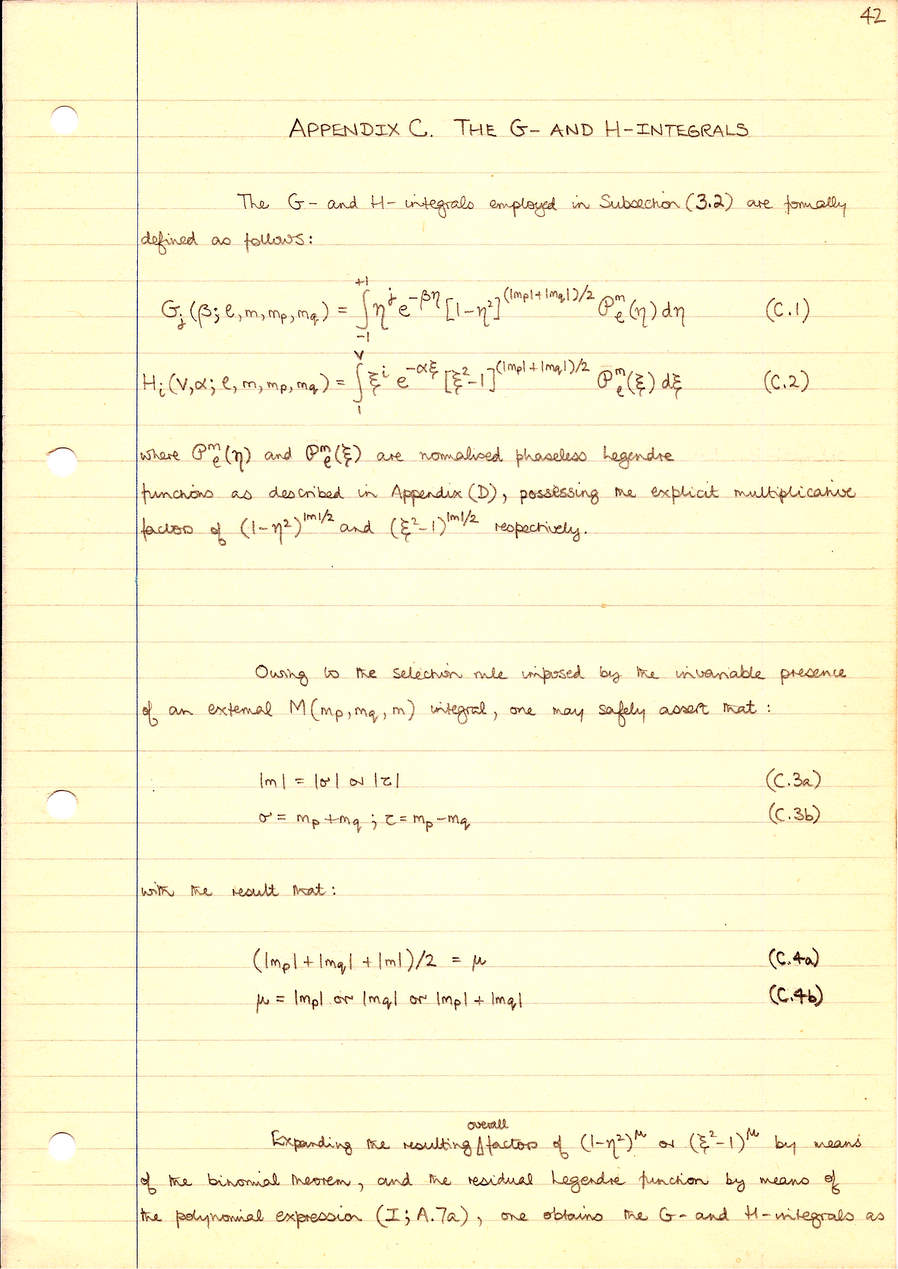 42
APPENDIX C. THE G- AND H-INTEGRALS
The G- and H- integrals employed in Subsection (3.2) are formally
defined as follows:
G_j(β; ℓ, m, m_p, m_q) = ∫_{-1}^{+1} η^j e^{-βη} [1-η²]^{(|m_p|+|m_q|)/2} 𝒫_ℓ^m(η) dη (C.1)
H_i(V, α; ℓ, m, m_p, m_q) = ∫_1^V ξ^i e^{-αξ} [ξ²-1]^{(|m_p|+|m_q|)/2} 𝒫_ℓ^m(ξ) dξ (C.2)
where 𝒫_ℓ^m(η) and 𝒫_ℓ^m(ξ) are normalised phaseless Legendre
functions as described in Appendix (D), possessing the explicit multiplicative
factors of (1-η²)^{|m|/2} and (ξ²-1)^{|m|/2} respectively.
Owing to the selection rule imposed by the invariable presence
of an external M(m_p, m_q, m) integral, one may safely assert that:
|m| = |σ| or |τ| (C.3a)
σ = m_p + m_q ; τ = m_p - m_q (C.3b)
with the result that:
(|m_p| + |m_q| + |m|)/2 = μ (C.4a)
μ = |m_p| or |m_q| or |m_p| + |m_q| (C.4b)
Expanding the resulting overall factors of (1-η²)^μ or (ξ²-1)^μ by means
of the binomial theorem, and the residual Legendre function by means of
the polynomial expression (I; A.7a), one obtains the G- and H-integrals as